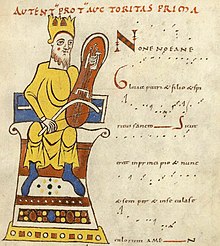 AUTENT PROT AUC TORITAS PRIMA
NONENOEANE
Gloria patri & filio & spi
ritui sancto Sicut
erat in principio & nunc
& semp & in secula secu
culorum AMEN